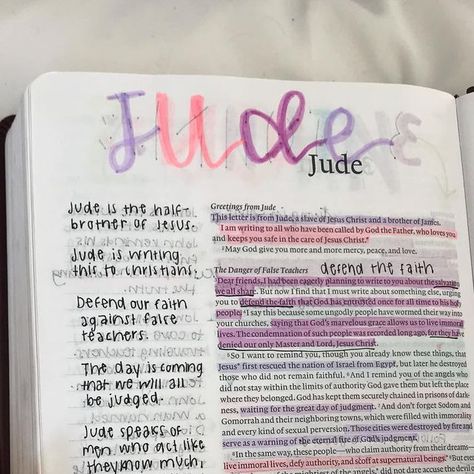 Jude
Jude
Jude is the half-
brother of Jesus.
Jude is writing
this to christians.
Defend our faith
against false
teachers.
The day is coming
that we will all
be judged.
Jude speaks of
men who act like
they know much,
Greetings from Jude
This letter is from Jude, a slave of Jesus Christ and a brother of James.
I am writing to all who have been called by God the Father, who loves you
and keeps you safe in the care of Jesus Christ.
2May God give you more and more mercy, peace, and love.
The Danger of False Teachers defend the faith
Dear friends, I had been eagerly planning to write to you about the salvation
we all share. But now I find that I must write about something else, urging
you to defend the faith that God has entrusted once for all time to his holy
people. 4I say this because some ungodly people have wormed their way into
your churches, saying that God's marvelous grace allows us to live immoral
lives. The condemnation of such people was recorded long ago, for they have
denied our only Master and Lord, Jesus Christ.
5So I want to remind you, though you already know these things, that
Jesus first rescued the nation of Israel from Egypt, but later he destroyed
those who did not remain faithful. 6And I remind you of the angels who
did not stay within the limits of authority God gave them but left the place
where they belonged. God has kept them securely chained in prisons of dark-
ness, waiting for the great day of judgment. 7And don't forget Sodom and
Gomorrah and their neighboring towns, which were filled with immorality
and every kind of sexual perversion. Those cities were destroyed by fire and
serve as a warning of the eternal fire of God's judgment.
8In the same way, these people—who claim authority from their dreams—
live immoral lives, defy authority, and scoff at supernatural beings. 9But even